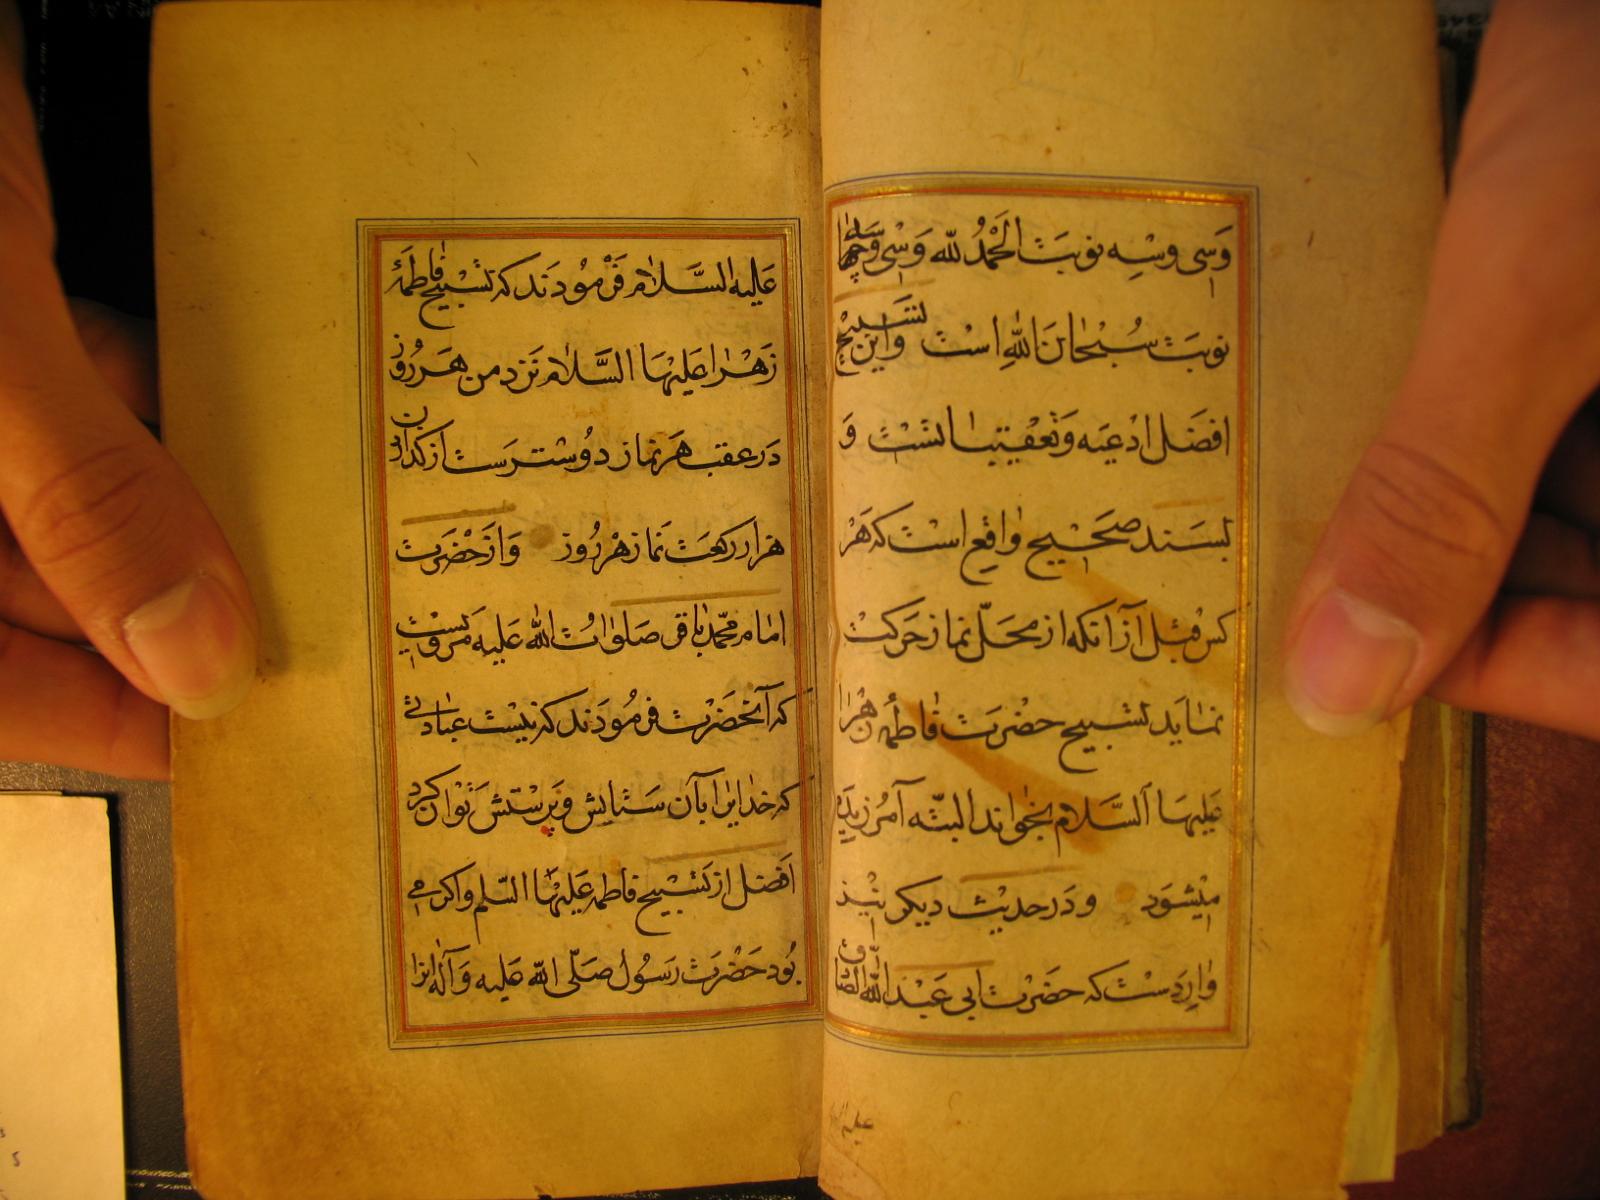 وَسِی وسِه نوبَت الحَمْدُ للّه وَسِی وَچهار
نوبَت سُبْحانَ اللّهِ است وَاین تسبیح
افضَل ادْعیَه وَتعقیبات است وَ
بسَنَد صحَیح واقع است که هَرْ
کس قبل از آنکه از محلّ نماز حرکت
نماید تسبیح حضرَت فاطمهٔ زهرا
عَلیهَا السَّلام بخواند البتّه آمرزیده
میشوَد ودَر حدیث دیکر نیز
واردست که حضرَت ابی عَبْد اللّه الصّادق
علیه السلام
عَلیه السَّلام فَرمودَند که تسبیح فاطمَهٔ
زَهرا عَلیهَا السَّلام نَزد من هَر رُوز
دَر عقب هَر نماز دوُستر رَست از کذاردن
هزار رکعَت نماز هر رُوز وَاز حَضرَت
امام محمّد باقر صَلوات اللّه عَلیه مَرویست
که آنحضرَت فرمودَند که نیست عبادتی
که خدایرا بآن ستایش وَپرستش تَوان کرد
اَفضل از تسبیح فاطمه عَلیهَا السّلم واکر می
بُود حَضرَت رسَوُل صَلّی اللّه عَلیه وَآله آنرا